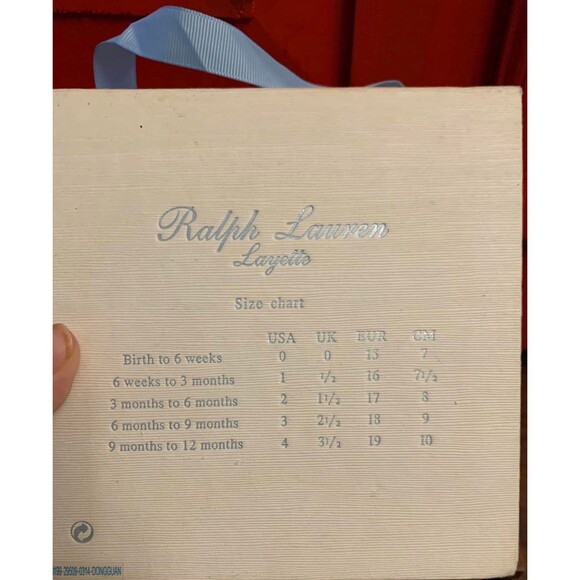 Ralph Lauren
Layette
Size chart
USA UK EUR CM
Birth to 6 weeks 0 0 15 7
6 weeks to 3 months 1 1/2 16 7 1/2
3 months to 6 months 2 1 1/2 17 8
6 months to 9 months 3 2 1/2 18 9
9 months to 12 months 4 3 1/2 19 10
-0314-DONGGUAN